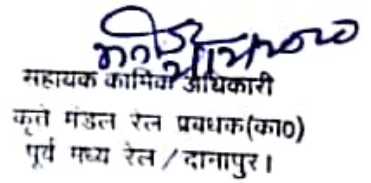 सहायक कार्मिक अधिकारी
कृते मंडल रेल प्रबंधक(का०)
पूर्व मध्य रेल / दानापुर।